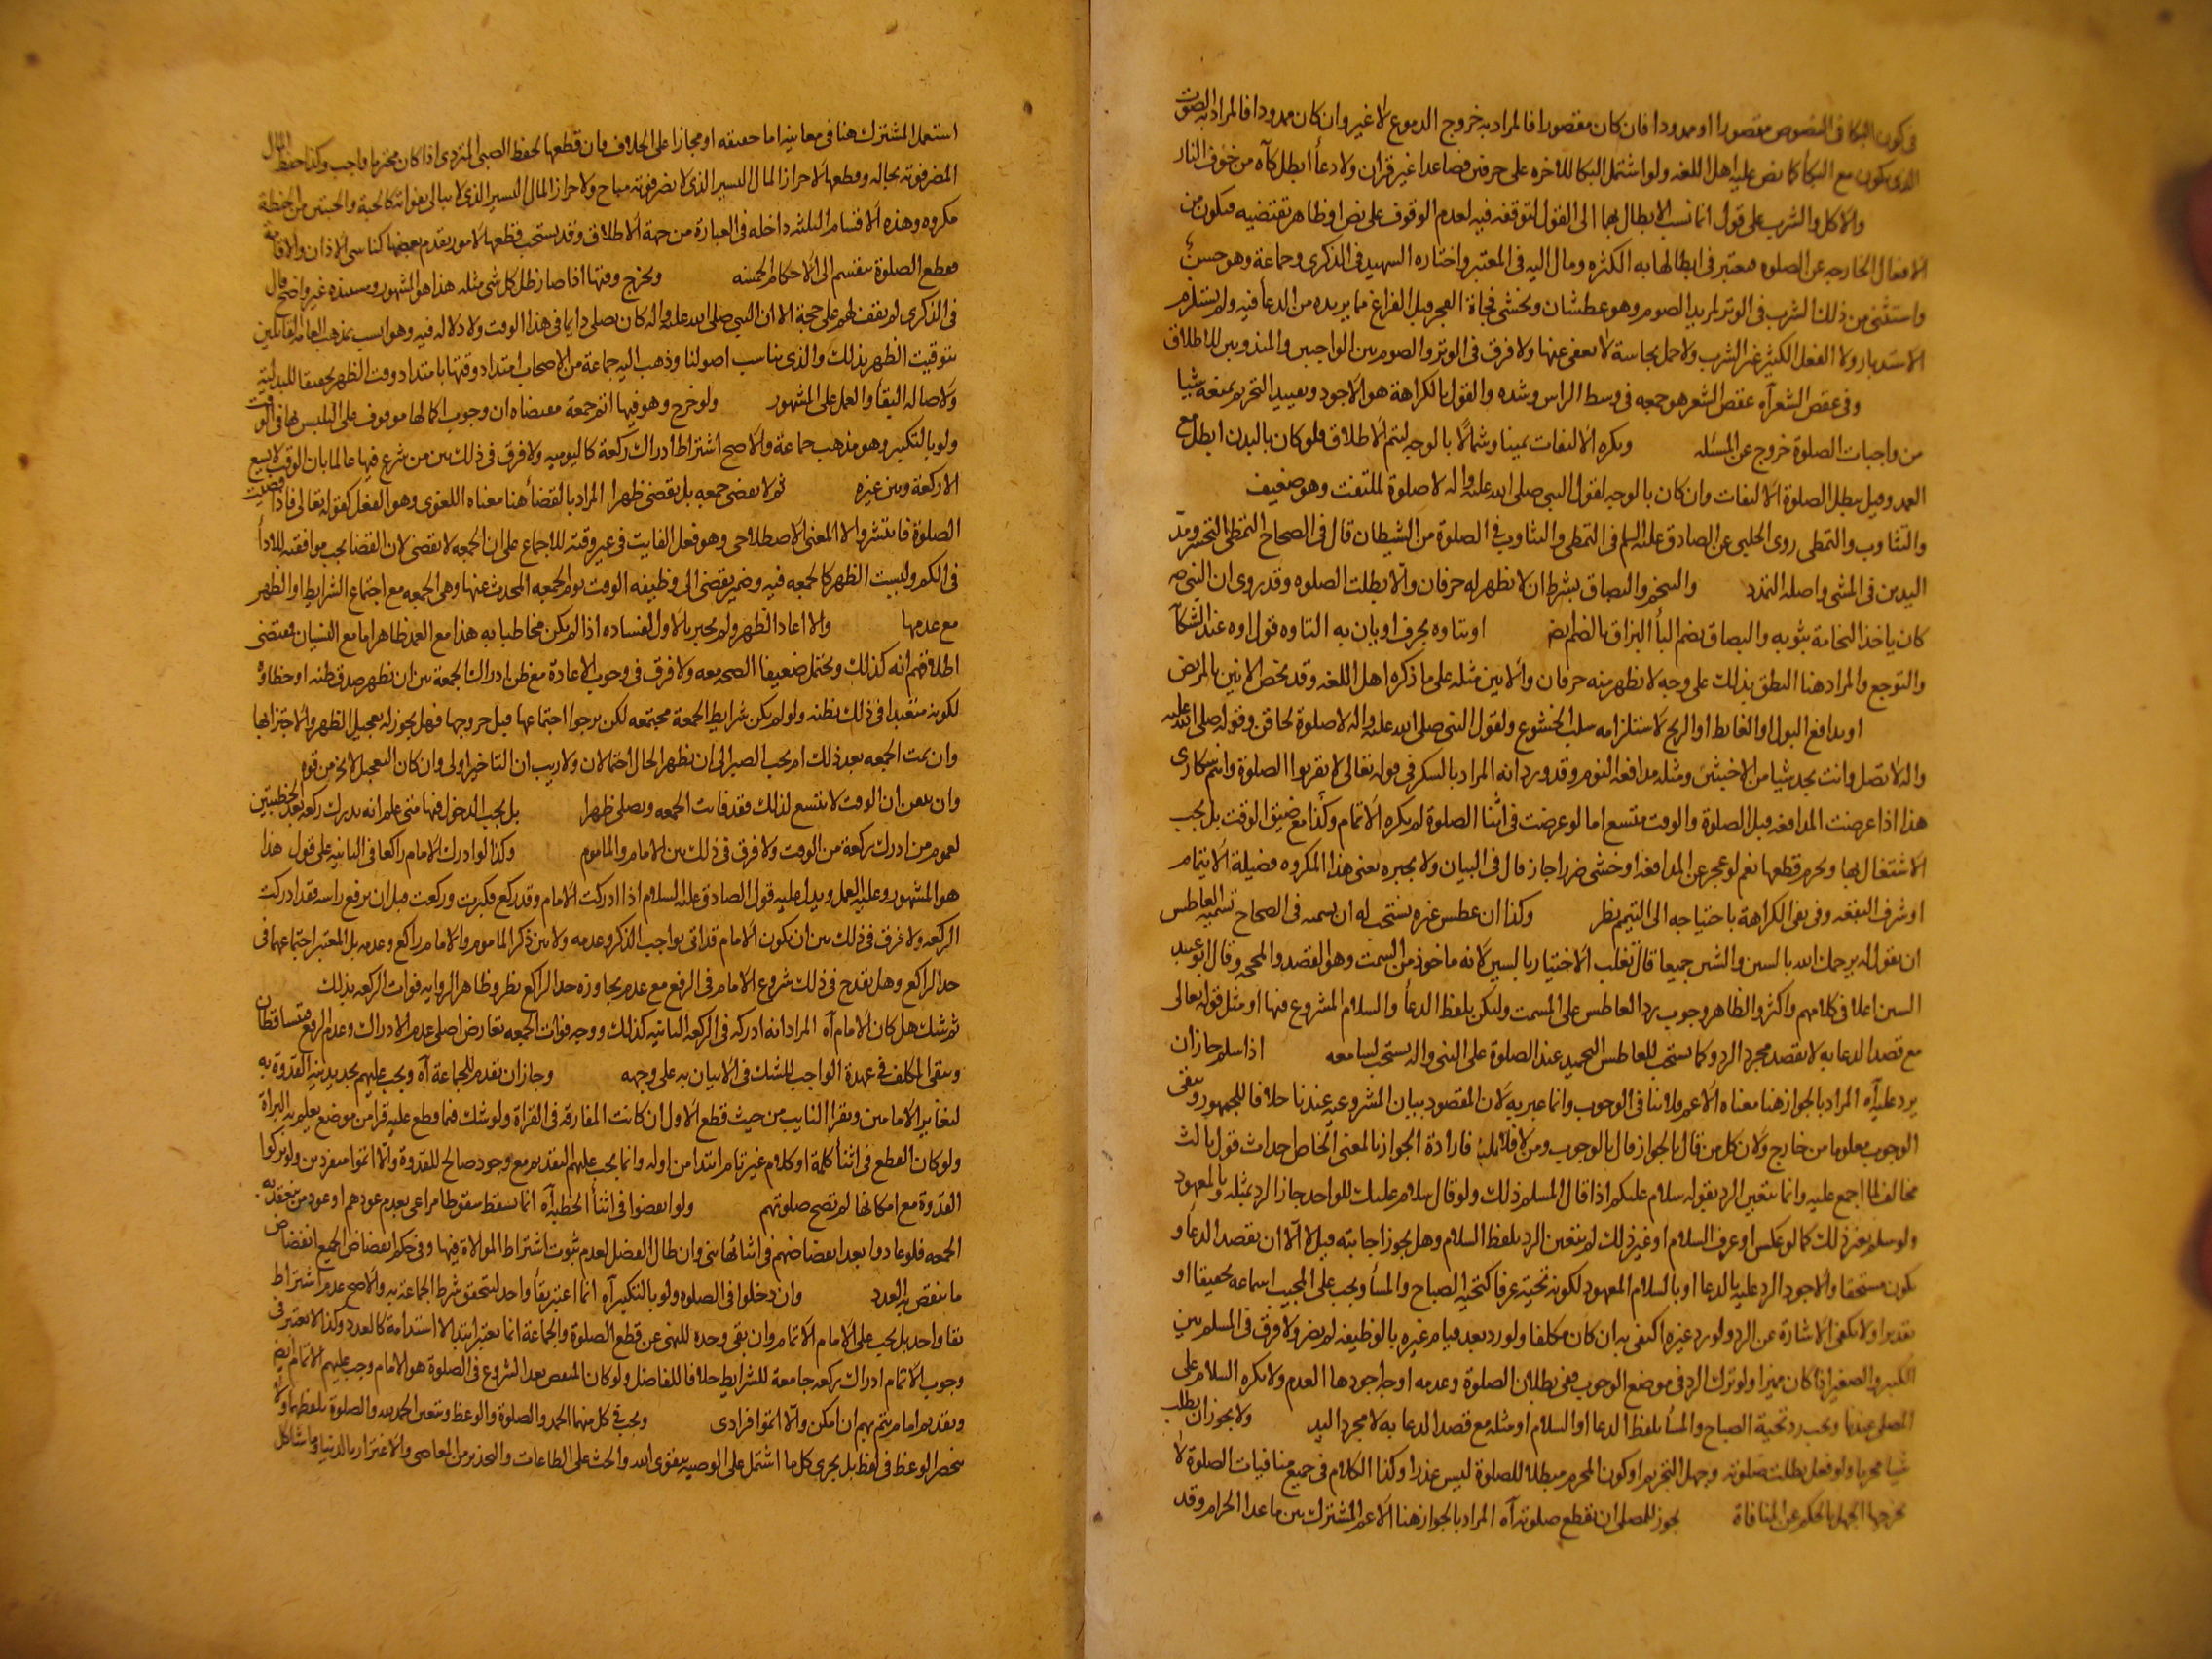 فى كون البكا فى النصوص مقصورا او ممدودا فان كان مقصورا فالمراد به خروج الدموع لا غير وان كان ممدودا فالمراد به الصوت
الذى يكون مع البكأ كما نص عليه اهل اللغه ولو اشتمل البكا للاخره على حرفين فصاعدا غير قران ولا دعأ ابطل كآه من خوف النار
والاكل والشرب على قول انما نسب الابطال بهما الى القول لتوقفه فيه لعدم الوقوف على نص او ظاهر تقتضيه فيكون من
الافعال الخارجه عن الصلوه معتبر فى ابطالها به الكثره ومال اليه فى المعتبر واختاره الشهيد فى الذكرى وجماعة وهو حسن
واستثنى من ذلك الشرب فى الوتر لمريد الصوم وهو عطشان ويخشى فجاة الفجر قبل الفراغ مما يريده من الدعأ فيه ولم يستلزم
الاستدبار ولا الفعل الكثير غير الشرب ولا حمل نجاسة لا يعفى عنها ولا فرق فى الوتر والصوم بين الواجبين والمندوبين للاطلاق
وفى عقص الشعر آه عقص الشعر هو جمعه فى وسط الراس وشده والقول بالكراهة هو الاجود وتقييد التحريم بمنعه شيا
من واجبات الصلوة خروج عن المسئله ويكره الالتفات يمينا وشمالا بالوجه ليتم الاطلاق فلو كان بالبدن ابطل مع
العمد وقيل يبطل الصلوة الالتفات وان كان بالوجه لقول النبى صلى الله عليه واله لا صلوة لملتفت وهو ضعيف
والتثاوب والتمطى روى الحلبى عن الصادق عليه السلم فى التمطى والتثاوب فى الصلوة من الشيطان قال فى الصحاح التمطى التبختر ومد
اليدين فى المشى واصله التمدد والتنخم والبصاق بشرط ان لا يظهر له حرفان والا بطلت الصلوه وقد روى ان النبى ص
كان ياخذ النخامة بثوبه والبصاق بضم البأ البزاق بالضم ايض او يتاوه بحرف او يان به التاوه قول اوه عند الشكآ
والتوجع والمراد هنا النطق بذلك على وجه لا يظهر منه حرفان والانين مثله على ما ذكره اهل اللغه وقد يخص الانين بالمريض
او يدافع البول او الغايط او الريح لاستلزامه سلب الخشوع ولقول النبى صلى الله عليه واله لا صلوة لحاقن وقوله صلى الله عليه
واله لا تصل وانت تجد شيا من الاخبثين ومثله مدافعه النوم وقد ورد انه المراد بالسكر فى قوله تعالى لا تقربوا الصلوة وانتم سكارى
هذا اذا عرضت المدافعه قبل الصلوة والوقت متسع اما لو عرضت فى اثنا الصلوة لم يكره الاتمام وكذا مع ضيق الوقت بل يجب
الاشتغال بها ويحرم قطعها نعم لو عجز عن المدافعه او خشى ضررا جاز قال فى البيان ولا يجبره يعنى هذا المكروه فضيلة الايتمام
او شرف البقعه وفى نفى الكراهة باحتياجه الى التيمم نظر وكذا ان عطس غيره يستحب له ان يسمته فى الصحاح تسميه العاطس
ان يقول له يرحمك الله بالسين والشين جميعا قال ثعلب الاختيار بالسين لانه ماخوذ من السمت وهو القصد والمحجه وقال ابو عبيد
الشين اعلا فى كلامهم واكثر والظاهر وجوب رد العاطس على المسمت وليكن بلفظ الدعأ والسلام المشروع فيها او مثل قوله تعالى
مع قصد الدعا به لا بقصد مجرد الرد وكما يستحب للعاطس التحميد عند الصلوة على النبى واله يستحب لسامعه اذا سلم جاز ان
يرد عليه آه المراد بالجواز هنا معناه الاعم فلا ينافى الوجوب وانما عبر به لان المقصود بيان المشروعيه عندنا خلافا للجمهور وبقى
الوجوب معلوما من خارج ولان كل من قال بالجواز قال بالوجوب ومن لا فلا فارادة الجواز بالمعنى الخاص احداث قول ثالث
مخالف لما اجمع عليه وانما يتعين الرد بقوله سلام عليكم اذا قال المسلم ذلك ولو قال سلام عليك للواحد جاز الرد بمثله وبالمعهود
ولو سلم بغير ذلك كما لو عكس او عرف السلام او غير ذلك لم يتعين الرد بلفظ السلام وهل يجوز اجابته قيل لا الا ان يقصد الدعأ و
يكون مستحقا والاجود الرد عليه بالدعا او بالسلام المعهود لكونه تحية عرفا كتحية الصباح والمسأ ويجب على المجيب اسماعه تحقيقا او
تقديرا ولا يكفى الاشارة عن الرد ولو رد غيره اكتفى به ان كان مكلفا ولو رد بعد قيام غيره بالوظيفه لم يضر ولا فرق فى المسلم بين
الكبير والصغير اذا كان مميزا ولو ترك الرد فى موضع الوجوب ففى بطلان الصلوة وعدمه اوجه اجودها العدم ولا يكره السلام على
المصلى عندنا ويجب رد تحية الصباح والمسأ بلفظ الدعا او السلام او مثله مع قصد الدعا به لا مجرد الرد ولا يجوز ان يطلب
شيا محرما ولو فعل بطلت صلوته وجهل التحريم او كون المحرم مبطلا للصلوة ليس عذرا وكذا الكلام فى جميع منافيات الصلوة لا
يخرجها الجهل بالحكم عن المنافاة يجوز للمصلى ان يقطع صلوته آه المراد بالجواز هنا الاعم المشترك بين ما عدا الحرام وقد
استعمل المشترك هنا فى معانيه اما حقيقه او مجازا على الخلاف فان قطعها لحفظ الصبى المتردى اذا كان محترما واجب وكذا حفظ المال
المضر فوته بحاله وقطعها لاحراز المال اليسير الذى لا يضر فوته مباح ولاحراز المال اليسير الذى لا يبالى بفواته كالحبة والحبتين من الحنطة
مكروه وهذه الاقسام الثلثه داخله فى العبارة من جهة الاطلاق وقد يستحب قطعها لامور تقدم بعضها كناسى الاذان والاقامة
فقطع الصلوة ينقسم الى الاحكام الخمسه ويخرج وقتها اذا صار ظل كل شى مثله هذا هو المشهور ومستنده غير واضح قال
فى الذكرى لم نقف لهم على حجة الا ان النبى صلى الله عليه واله كان يصلى دايما فى هذا الوقت ولا دلاله فيه وهو انسب بمذهب العامه القايلين
بتوقيت الظهر بذلك والذى يناسب اصولنا وذهب اليه جماعة من الاصحاب امتداد وقتها بامتداد وقت الظهر تحقيقا للبدلية
ولاصالة البقأ والعمل على المشهور ولو خرج وهو فيها اتم جمعة مقتضاه ان وجوب اكمالها موقوف على التلبس بها فى الوقت
ولو بالتكبير وهو مذهب جماعة والاصح اشتراط ادراك ركعة كاليوميه ولا فرق فى ذلك بين من شرع فيها عالما بان الوقت لا يسع
الا ركعة وبين غيره ثم لا يقضى جمعه بل يقضى ظهرا المراد بالقضأ هنا معناه اللغوى وهو الفعل كقوله تعالى فاذا قضيت
الصلوة فانتشروا لا المعنى الاصطلاحى وهو فعل الفايت فى غير وقته للاجماع على ان الجمعه لا تقضى لان القضأ يجب موافقته للادأ
فى الكم وليست الظهر كالجمعه فيه وضمير يقضى الى وظيفه الوقت يوم الجمعه المحدث عنها وهى الجمعه مع اجتماع الشرايط او الظهر
مع عدمها والا اعاد الظهر ولم يجز بالاول لفساده اذا لم يكن مخاطبا به هذا مع العمد ظاهر اما مع النسيان فمقتضى
اطلاقهم انه كذلك ويحتمل ضعيفا الصحه معه ولا فرق فى وجوب الاعادة مع ظن ادراك الجمعة بين ان يظهر صدق ظنه او خطاؤه
لكونه متعبدا فى ذلك بظنه ولو لم يكن شرايط الجمعة مجتمعه لكن يرجوا اجتماعها قبل خروجها فهل يجوز له تعجيل الظهر والاجتزا بها
وان تمت الجمعه بعد ذلك ام يجب الصبر الى ان يظهر الحال احتمالان ولا ريب ان التاخير اولى وان كان التعجيل لا يخ من قوه
وان تيقن ان الوقت لا يتسع لذلك فقد فاتت الجمعه ويصلى ظهرا بل يجب الدخول فيها متى علم انه يدرك ركعه بعد الخطبتين
لعموم من ادرك ركعة من الوقت ولا فرق فى ذلك بين الامام والماموم وكذا لو ادرك الامام راكعا فى الثانيه على قول هذا
هو المشهور وعليه العمل ويدل عليه قول الصادق عليه السلام اذا ادركت الامام وقد ركع فكبرت وركعت قبل ان يرفع راسه فقد ادركت
الركعه ولا فرق فى ذلك بين ان يكون الامام قد اتى بواجب الذكر وعدمه ولا بين ذكر الماموم والامام راكع وعدمه بل المعتبر اجتماعهما فى
حد الراكع وهل يقدح فى ذلك شروع الامام فى الرفع مع عدم مجاوزه حد الراكع نظر وظاهر الروايه فوات الركعه بذلك
ثم شك هل كان الامام آه المراد انه ادركه فى الركعه الثانيه كذلك ووجه فوات الجمعه تعارض اصلى عدم الادراك وعدم الرفع فتساقطان
ويبقى المكلف فى عهدة الواجب للشك فى الاتيان به على وجهه وجاز ان تقدم الجماعة آه ويجب عليهم تجديد نية القدوة به
لتغاير الامامين ويقرا النايب من حيث قطع الاول ان كانت المفارقه فى القراة ولو شك فيما قطع عليه قرا من موضع يعلم به البراة
ولو كان القطع فى اثنأ كلمة او كلام غير تام ابتدا من اوله وانما يجب عليهم التقديم مع وجود صالح للقدوة والا اتموا منفردين ولو تركوا
القدوة مع امكانها لم تصح صلوتهم ولو انفضوا فى اثنأ الخطبه آه انما يسقط سقوطا مراعى بعدم عودهم او عود من ينعقد به
الجمعه فلو عادوا بعد انفضاضهم فى اثنائها بنى وان طال الفصل لعدم ثبوت اشتراط الموالاة فيها وفى حكم انفضاض الجميع انفضاض
ما ينقص به العدد وان دخلوا فى الصلوه ولو بالتكبير آه انما اعتبر بقأ واحد لتحقق شرط الجماعة به والاصح عدم اشتراط
بقا واحد بل يجب على الامام الاتمام وان بقى وحده للنهى عن قطع الصلوة والجماعة انما يعتبر ابتدا لا استدامة كالعدد وكذا لا يعتبر فى
وجوب الاتمام ادراك ركعه جامعة للشرايط خلافا للفاضل ولو كان المنفض بعد الشروع فى الصلوة هو الامام وجب عليهم الاتمام ايض
وتقديم امام يتم بهم ان امكن والا اتموا فرادى ويجب فى كل منهما الحمد والصلوة والوعظ ويتعين الحمد لله والصلوة بلفظهما ولا
ينحصر الوعظ فى لفظ بل يجزى كل ما اشتمل على الوصيه بتقوى الله والحث على الطاعات والتحذير من المعاصى والاغترار بالدنيا وما شاكل